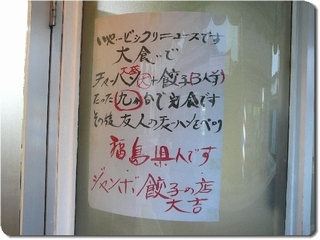 いやービックリニュースです
大食いで
チャーハン大+餃子3人前
たった九分で完食です
その後友人のチャーハンをペロリ
福島県人です
ジャンボ餃子の店
大吉